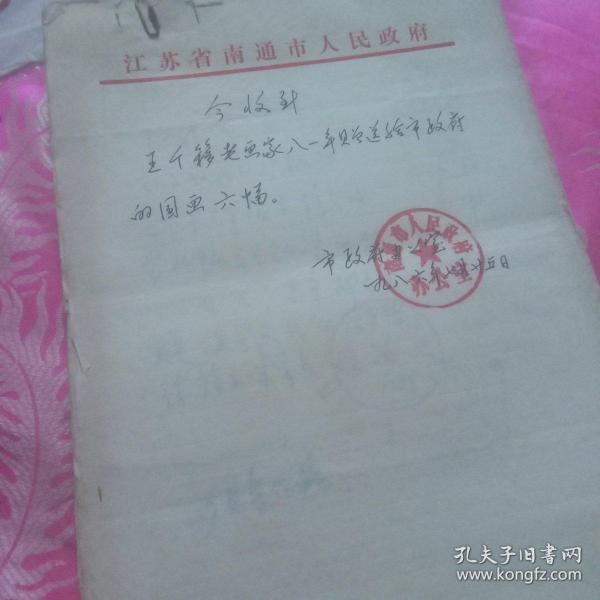 江苏省南通市人民政府
今收到
王个簃老画家八一年赠送给市政府
的国画六幅。
市政府办公室
南通市人民政府
办公室
九八六年七月廿五日
孔夫子旧书网
www.kongfz.com